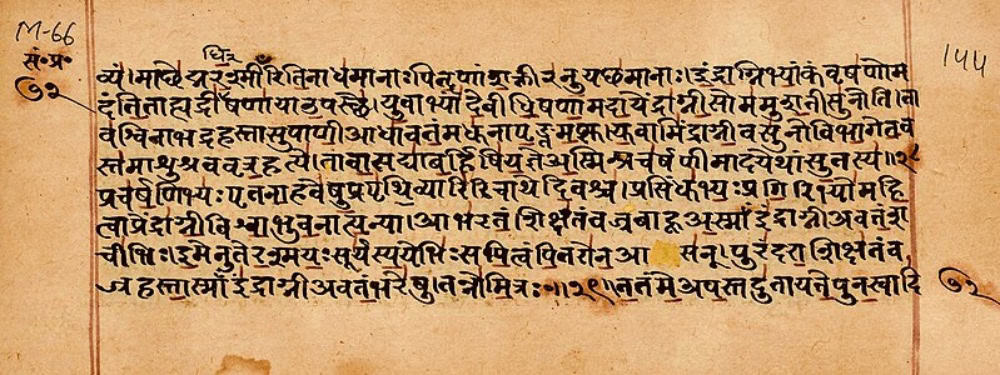 M-66
सं॰प्र॰
७२
धि२
144
व्यं।माछेद्मरश्मीँरितिनाधमानाःपितृणांशक्तीरनुयछमानाः।इंद्राग्निभ्यांकंवृषणोम
दंतिताह्यद्रीधिषणायाउपस्छे।युवाभ्यांदेवीधिषणामदायेंद्राग्नीसोममुशतीसुनोति।ता
वश्विनाभद्रहस्तासुपाणीआधावतंमधुनापृङ्क्तमप्सु।युवामिंद्राग्नीवसुनोविभागेतव
स्तमाशुश्रववृत्रहत्ये।तावासद्याबर्हिषियज्ञेअस्मिन्प्रचर्षणीमादयेथांसुतस्य॥२८
प्रचर्षणिभ्यःपृतनाहवेषुप्रपृथिव्यारिरिचाथेदिवश्च।प्रसिंधुभ्यःप्रगिरिभ्योमहि
त्वाप्रेंद्राग्नीविश्वाभुवनात्यन्या।आभरतंशिक्षतंवज्रबाहूअस्माँइंद्राग्नीअवतंश
चीभिः।इमेनुतेरश्मयःसूर्यस्ययेभिःसपित्वंपितरोनआ सन्।पुरंदराशिक्षतंव
ज्रहस्तास्माँइंद्राग्नीअवतंभरेषु।तन्नोमित्रः०॥२९॥ततंमेअपस्तदुतायतेपुनस्वादि
७२